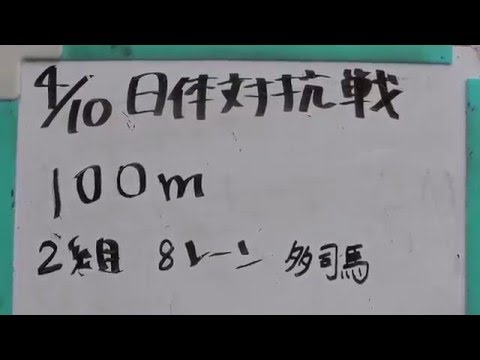 4/10 日体対抗戦
100m
2組目 8レーン 多司馬